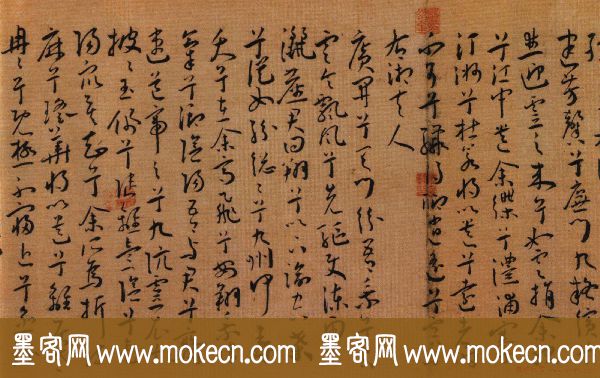 建芳馨兮廡門九嶷繽
並迎靈之來兮如雲捐余
兮江中遺余褋兮澧浦
汀洲兮杜若將以遺兮遠
不可兮驟得聊逍遙兮
右湘夫人
廣開兮天門紛吾乘
雲令飄風兮先驅使涷雨
灑塵君回翔兮以下踰空桑
兮從女紛總總兮九州何
夭兮在余高飛兮安翔乘
氣兮御陰陽吾與君兮
速道帝之兮九坑靈衣
披披玉佩兮陸離壹陰兮
陽眾莫知兮余所為折
麻兮瑤華將以遺兮離居
冉冉兮既極不寖
墨客网 www.mokecn.com 墨客网 www.mokecn.com